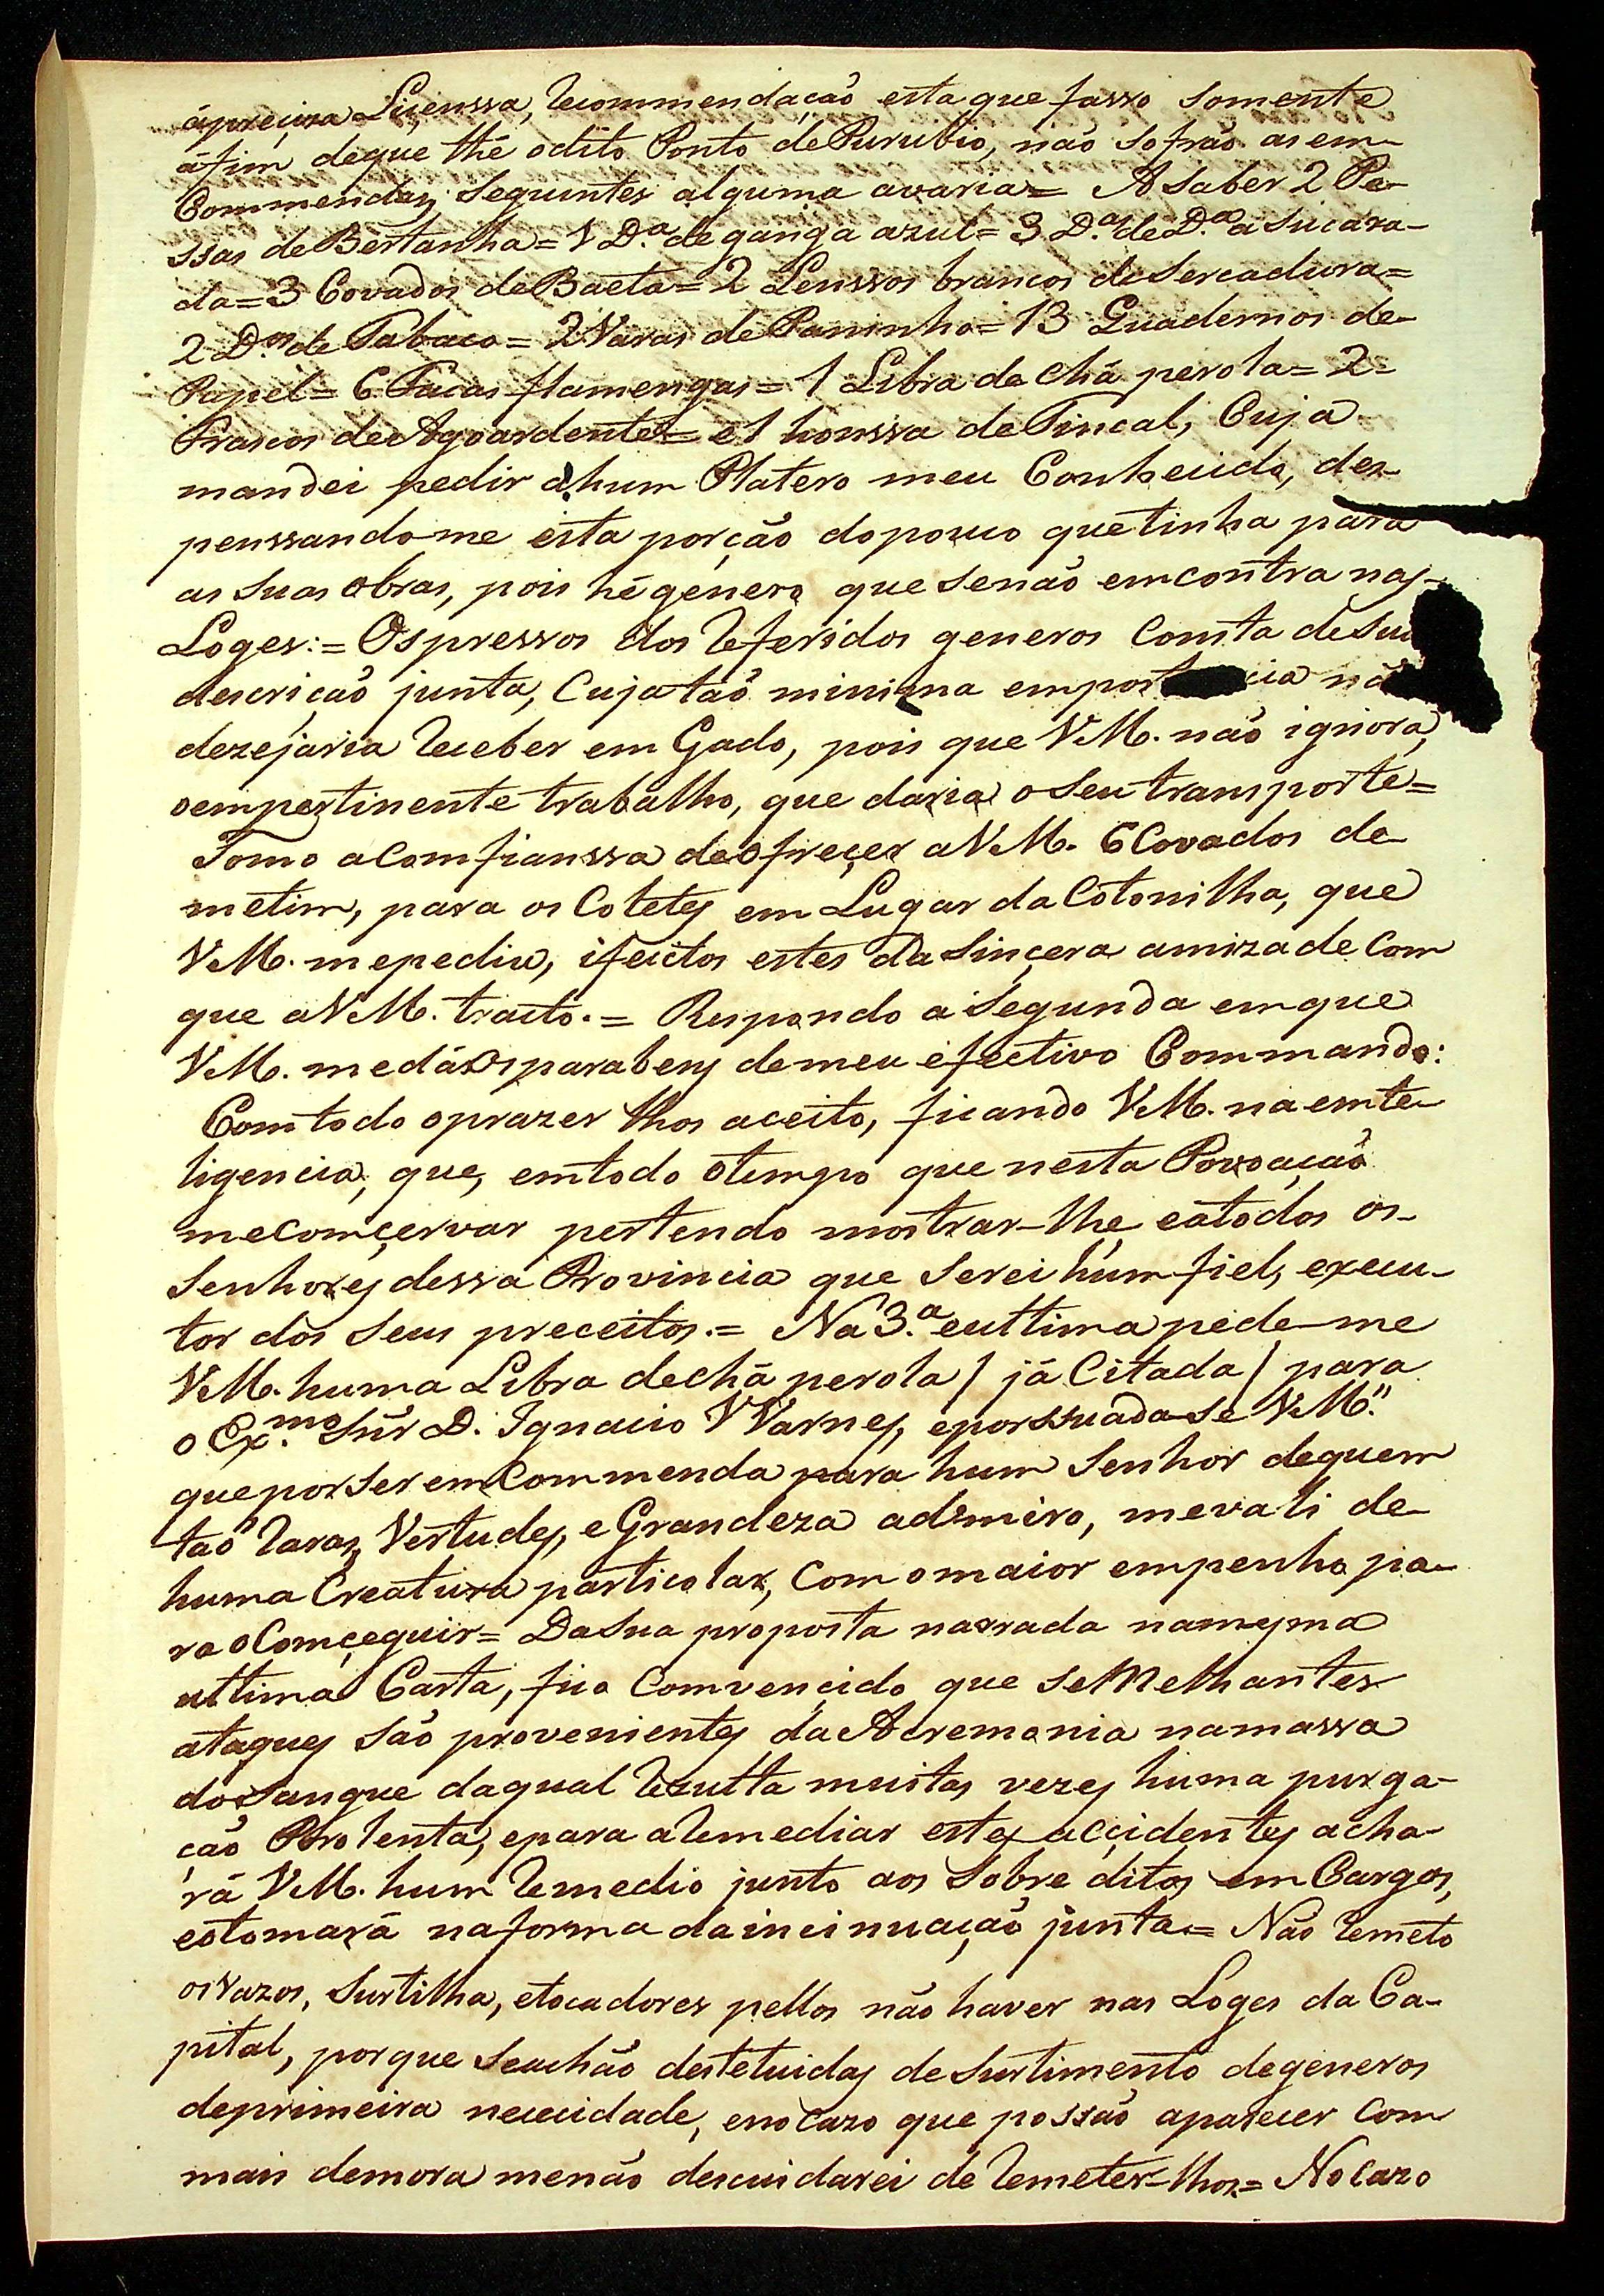 ápreciza Licenssa, recommendação esta que fasso somente
áfim deque thé odito Ponto de Purubio, não sofrão as em-
Commendas, Seguintes alguma avaria = A Saber 2 Pe-
ssas de Bertanha = 1 D.ª de ganga azul = 3 D.as de D.ª a Sucara-
da = 3 Covados de Baeta = 2 Lenssos brancos de Sercadura =
2 D.os de Tabaco = 2 Varas de Paninho = 13 Quadernos de-
Papel = 6 Facas flamengas = 1 Libra de Chá perola = 2 =
Frascos de Agoardente = e 1 honssa de Tincal, Cuja
mandei pedir a hum Platero meu Conhecido, des-
penssandome esta porção dopouco quetinha para
as Suas obras, pois hé género que senão emcontra nas-
Loges: = Ospressos dos referidos generos Comsta de Sua
descrição junta, Cujatão minima emport cia nã
dezejaria receber em Gado, pois que VM. não ignora,
oempertinente trabalho, que daria o Seu transporte =
Tomo aComfianssa de ofreçer a VM. 6 Covados de
metim, para os Coletes em Lugar da Cotonilha, que
VM. mepediu, ifeitos estes da Sinçera amizade Com
que a VM. tracto. = Respondo a Segunda emque
VM. medá os parabens demeu efectivo Commando:
Comtodo oprazer lhos aceito, ficando VM. na emte-
ligencia, que, emtodo otempo que nesta Povoação
meComçervar pertendo mostrar-lhe eatodos os-
Senhores dessa Provincia que Serei húm fiel, execu-
tor dos Seus preceitos. = Na 3.ª euttima pede-me
VM. huma Libra dechá perola / já Citada / para
o Ex.mo Snr D. Ignacio V Varnes, eporssuada-se VM."
quepor Ser emCommenda para hum Senhor dequem
tão raras Vertudes, e Grandeza admiro, mevali de-
huma Creatura particolar, Com omaior empenho pa-
ra oComçeguir = Da Sua proposta narrada namesma
uttima Carta, fico Comvençido que SeMelhantes
ataques são provenientes da Acremonia namassa
do Sangue daqual rezulta muitas vezes huma purga-
ção Prolenta, epara aremediar estes acçidentes acha-
rá VM. hum remedio junto aos Sobre ditos em Cargos,
eotomará naforma da incinuação junta = Não remeto
os vazos, Surtilha, etocadores pellos não haver nas Loges da Ca-
pital, porque Seachão destetuidas de Surtimento degeneros
deprimeira nececidade, enoCazo que possão aparecer Com
mais demora menão descuidarei de remeter-lhos = NoCazo